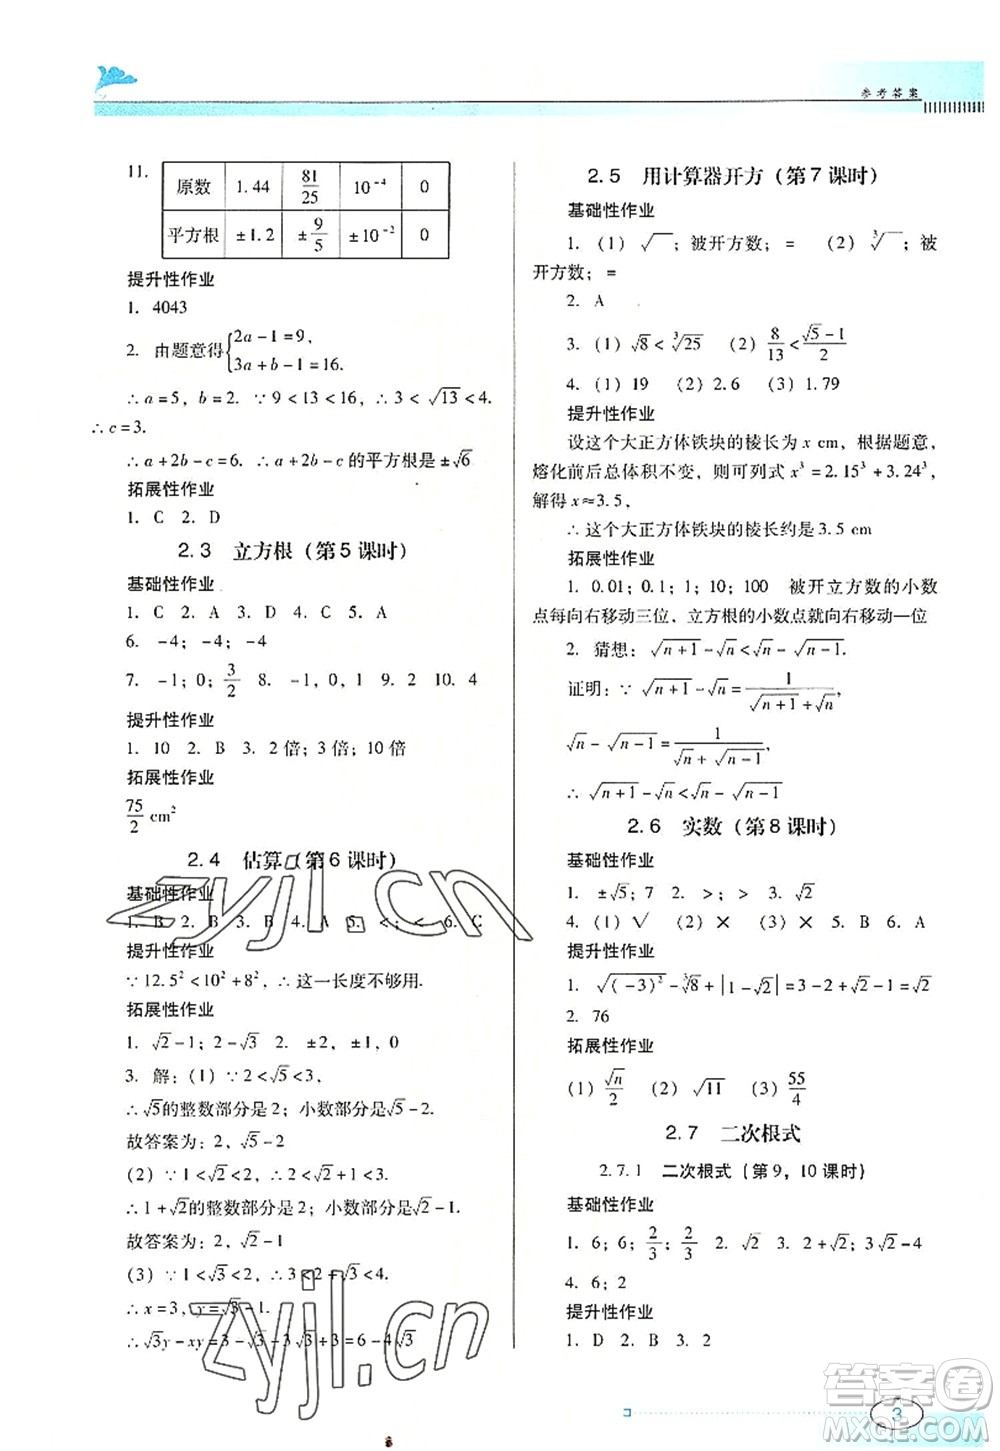 参考答案
11.
原数 1.44 81/25 10⁻⁴ 0
平方根 ±1.2 ±9/5 ±10⁻² 0
提升性作业
1. 4043
2. 由题意得{2a-1=9,
3a+b-1=16.
∴a=5，b=2. ∵9<13<16，∴3<√13<4.
∴c=3.
∴a+2b-c=6. ∴a+2b-c的平方根是±√6
拓展性作业
1. C 2. D
2.3 立方根（第5课时）
基础性作业
1. C 2. A 3. D 4. C 5. A
6. -4；-4；-4
7. -1；0；3/2 8. -1，0，1 9. 2 10. 4
提升性作业
1. 10 2. B 3. 2倍；3倍；10倍
拓展性作业
75/2 cm²
2.4 估算（第6课时）
基础性作业
1. B 2. B 3. B 4. A 5. <；< 6. C
提升性作业
∵12.5²<10²+8²，∴这一长度不够用.
拓展性作业
1. √2-1；2-√3 2. ±2，±1，0
3. 解：（1）∵2<√5<3，
∴√5的整数部分是2；小数部分是√5-2.
故答案为：2，√5-2
（2）∵1<√2<2，∴2<1+√2<3，
∴1+√2的整数部分是2；小数部分是√2-1.
故答案为：2，√2-1
（3）∵1<√3<2，∴3<2+√3<4.
∴x=3，y=√3-1.
∴√3y-xy=3-√3-3√3+3=6-4√3
2.5 用计算器开方（第7课时）
基础性作业
1.（1）√￣；被开方数；= （2）³√￣；被
开方数；=
2. A
3.（1）√8<³√25 （2）8/13<(√5-1)/2
4.（1）19 （2）2.6 （3）1.79
提升性作业
设这个大正方体铁块的棱长为x cm，根据题意，
熔化前后总体积不变，则可列式x³=2.15³+3.24³，
解得x≈3.5，
∴这个大正方体铁块的棱长约是3.5 cm
拓展性作业
1. 0.01；0.1；1；10；100 被开立方数的小数
点每向右移动三位，立方根的小数点就向右移动一位
2. 猜想：√(n+1)-√n<√n-√(n-1).
证明：∵√(n+1)-√n=1/(√(n+1)+√n),
√n-√(n-1)=1/(√n+√(n-1)),
∴√(n+1)-√n<√n-√(n-1)
2.6 实数（第8课时）
基础性作业
1. ±√5；7 2. >；> 3. √2
4.（1）√ （2）× （3）× 5. B 6. A
提升性作业
1. √(-3)²-³√8+|1-√2|=3-2+√2-1=√2
2. 76
拓展性作业
（1）√n/2 （2）√11 （3）55/4
2.7 二次根式
2.7.1 二次根式（第9，10课时）
基础性作业
1. 6；6；2/3；2/3 2. √2 3. 2√2；3√2-4
4. 6；2
提升性作业
1. D 2. B 3. 2
3
zyjl.cn
zyjl.cn
答案圈
MXQE.COM